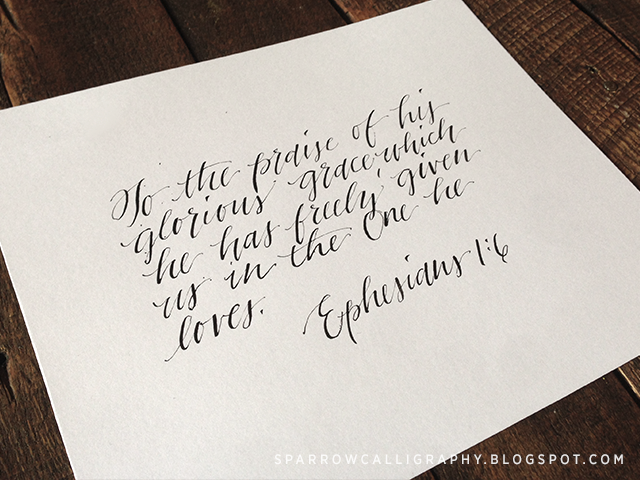 To the praise of his
glorious grace which
he has freely given
us in the One he
loves.
Ephesians 1:6
SPARROWCALLIGRAPHY.BLOGSPOT.COM